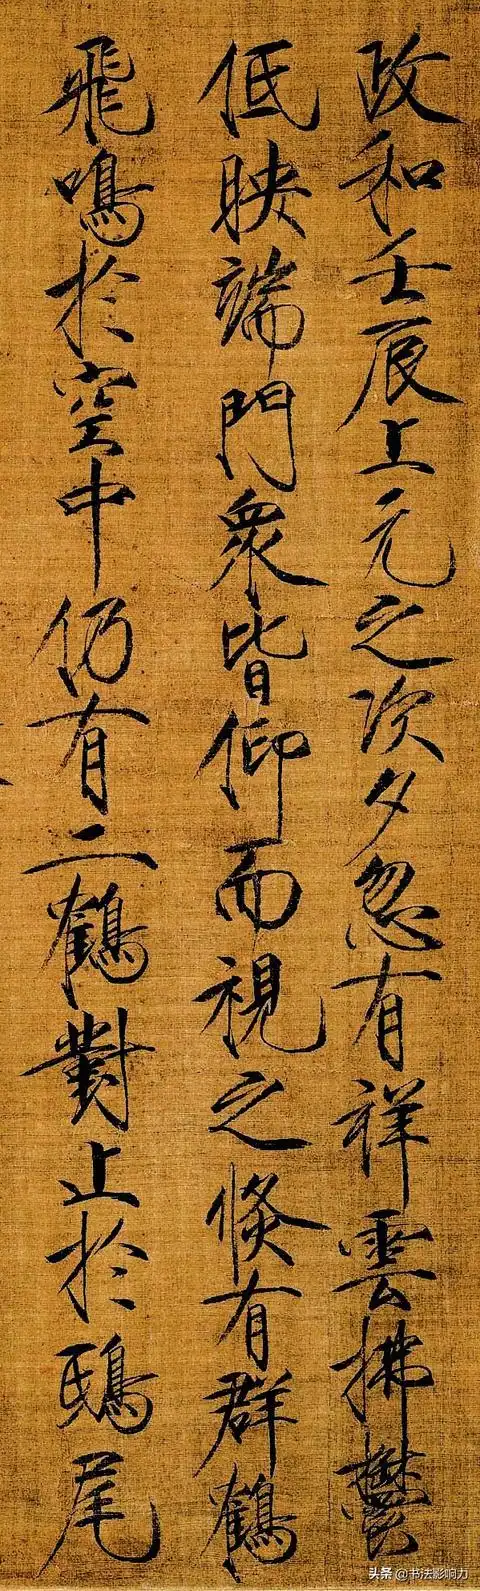 政和壬辰上元之次夕忽有祥雲拂鬱
低映端門衆皆仰而視之倐有群鶴
飛鳴於空中仍有二鶴對止於鴟尾
头条 @书法影响力